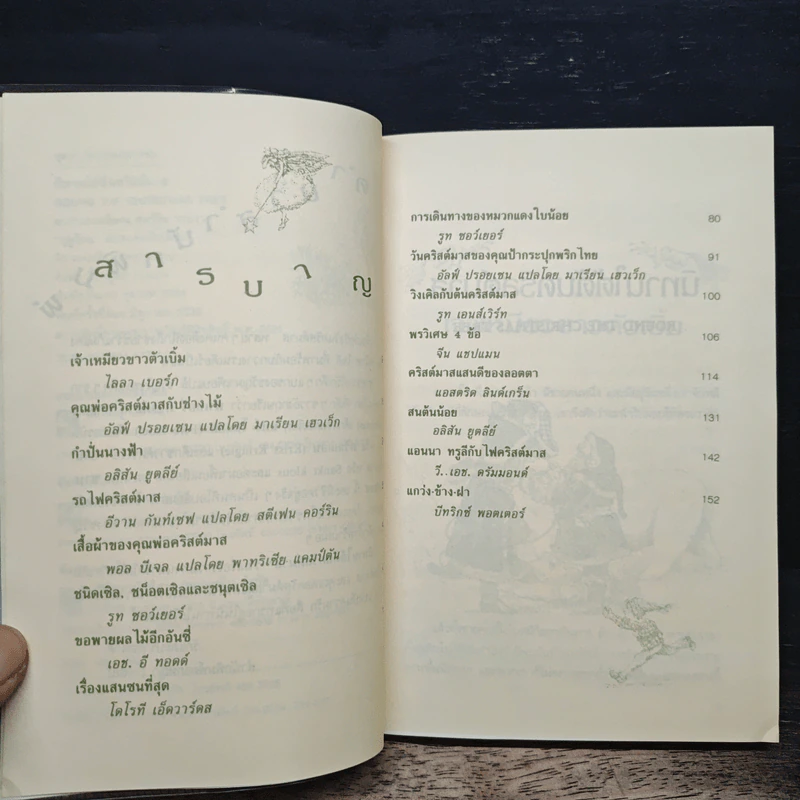 สารบาญ
เจ้าเหมียวขาวตัวเบิ้ม
ไลลา เบอร์ก
คุณพ่อคริสต์มาสกับช่างไม้
อัลฟ์ ปรอยเซน แปลโดย มาเรียน เฮวเว็ก
กำปั่นนางฟ้า
อลิสัน ยูตลีย์
รถไฟคริสต์มาส
อีวาน กันท์เชฟ แปลโดย สตีเฟน คอร์ริน
เสื้อผ้าของคุณพ่อคริสต์มาส
พอล บีเจล แปลโดย พาทริเซีย แคมป์ตัน
ชนิดเซิล. ชน็อตเซิลและชนุตเซิล
รูท ซอว์เยอร์
ขอพายผลไม้อีกอันซี่
เอช. อี ทอดด์
เรื่องแสนซนที่สุด
โดโรที เอ็ดวาร์ดส
การเดินทางของหมวกแดงใบน้อย 80
รูท ซอว์เยอร์
วันคริสต์มาสของคุณป้ากระปุกพริกไทย 91
อัลฟ์ ปรอยเซน แปลโดย มาเรียน เฮวเว็ก
วิงเคิลกับต้นคริสต์มาส 100
รูท เอนส์เวิร์ท
พรวิเศษ 4 ข้อ 106
จีน แชปแมน
คริสต์มาสแสนดีของลอตตา 114
แอสตริด ลินด์เกร็น
สนต้นน้อย 131
อลิสัน ยูตลีย์
แอนนา ทรูลีกับไฟคริสต์มาส 142
วี..เอช. ดรัมมอนด์
แกว่ง·ข้าง·ฝา 152
บีทริกซ์ พอตเตอร์